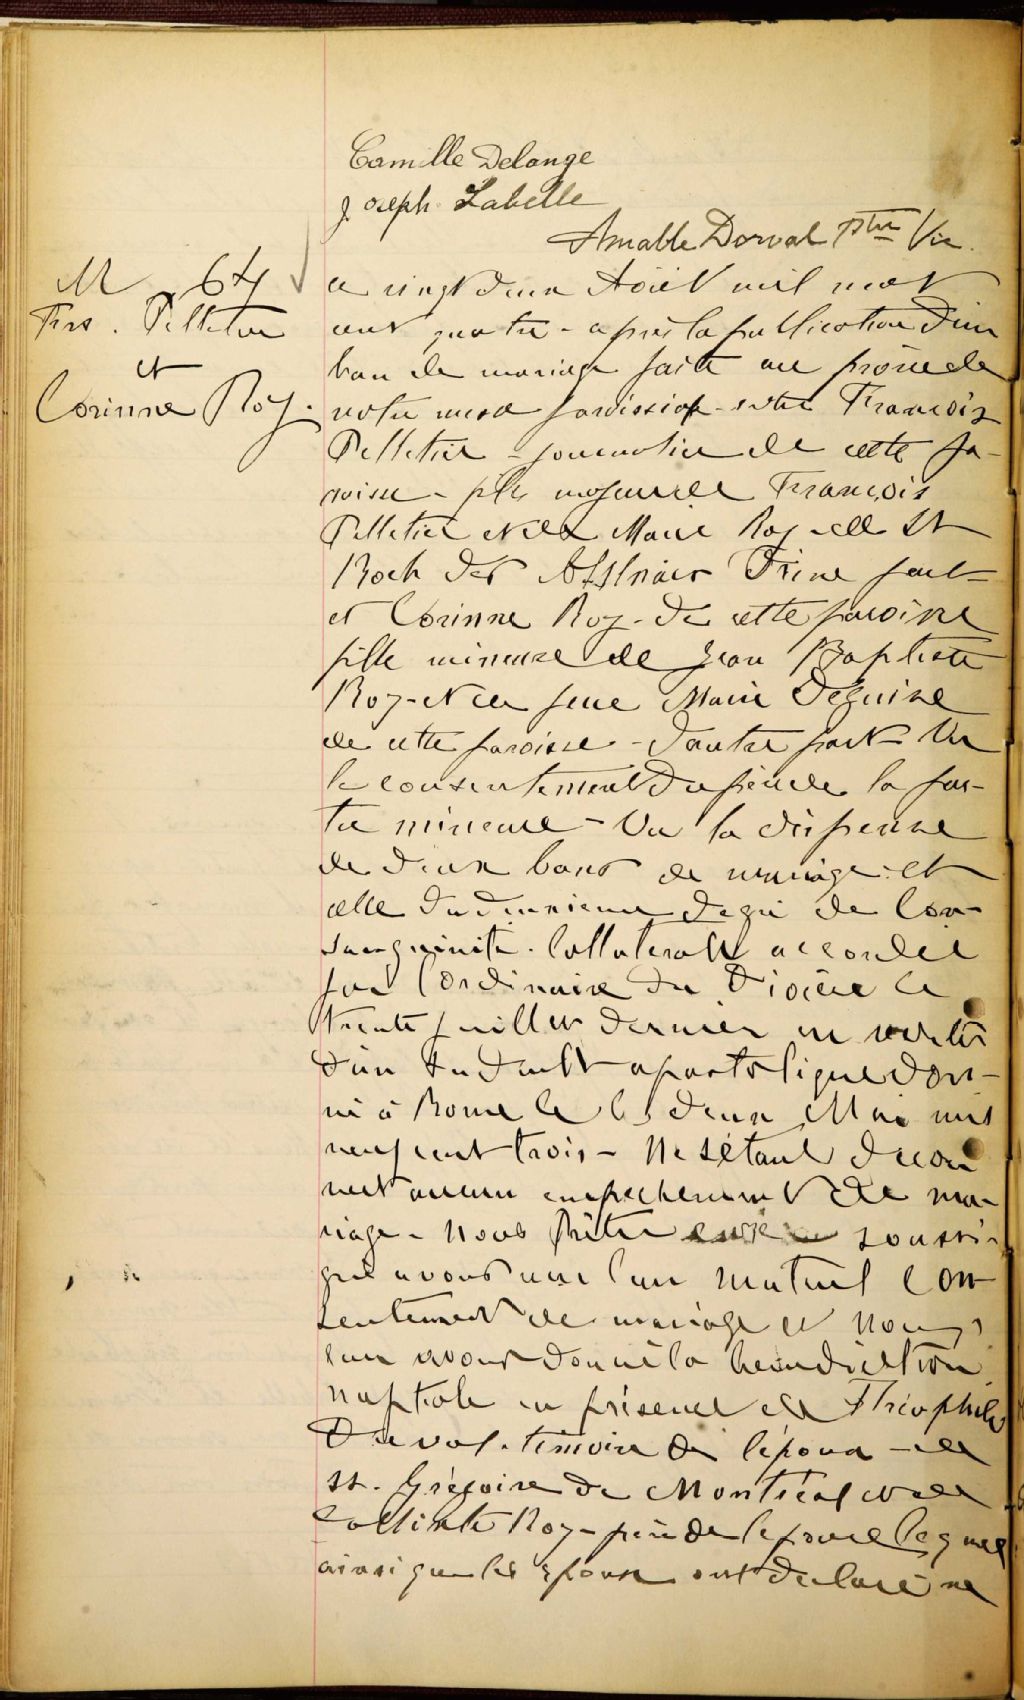 Camille Delange
Joseph Labelle
Amable Dorval Ptre Vic.
M 64
Frs. Pelletier
et
Corinne Roy.
Le vingt deux Août mil neuf
cent quatre - après la publication d'un
ban de mariage faite au prône de
notre messe paroissiale entre François
Pelletier - journalier de cette pa-
roisse - fils majeur de François
Pelletier et de Marie Roy de St
Roch des d'une part
et Corinne Roy - de cette paroisse
fille mineure de Jean Baptiste
Roy - et de feue Marie Deguise
de cette paroisse - d'autre part - Vu
le consentement du père de la par-
tie mineure - Vu la dispense
de deux bans de mariage et
celle du deuxieme degré de Con-
sanguinité Collaterale accordée
par l'ordinaire du Diocèse le
trente juillet dernier en vertu
d'un Indult apostolique don-
né à Rome le deux Mai mil
neuf cent trois - Ne s'étant décou
vert aucun empechement de ma-
riage - nous Prêtre soussi-
gné avons reçu leur mutuel con
sentement de mariage et nous
leur avons donné la benediction
nuptiale en présence de Théophile
Dorval - témoin de l'époux - de
St. Grégoire de Montréal et de
Roy - père de l'épouse lesquels
ainsi que les époux ont declaré ne